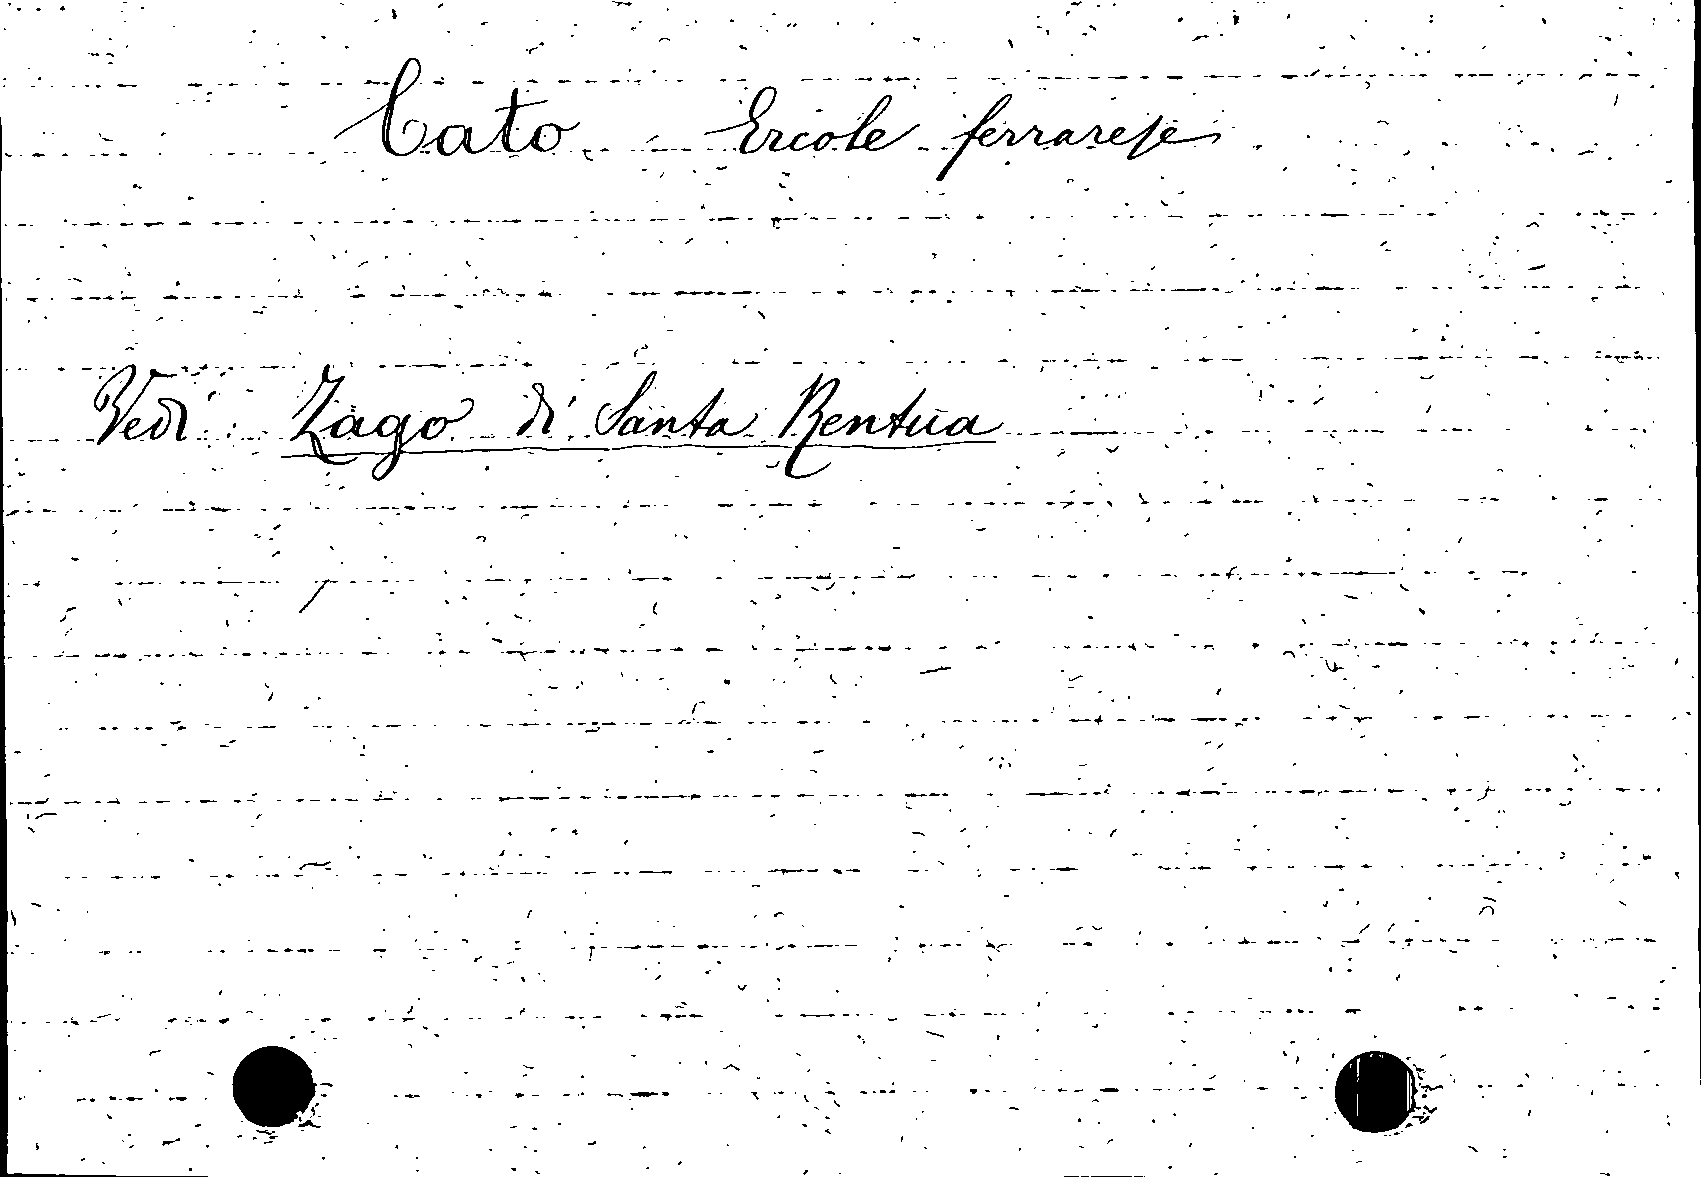 Cato Ercole ferrarese
Vedi: Zago di Santa Rentua